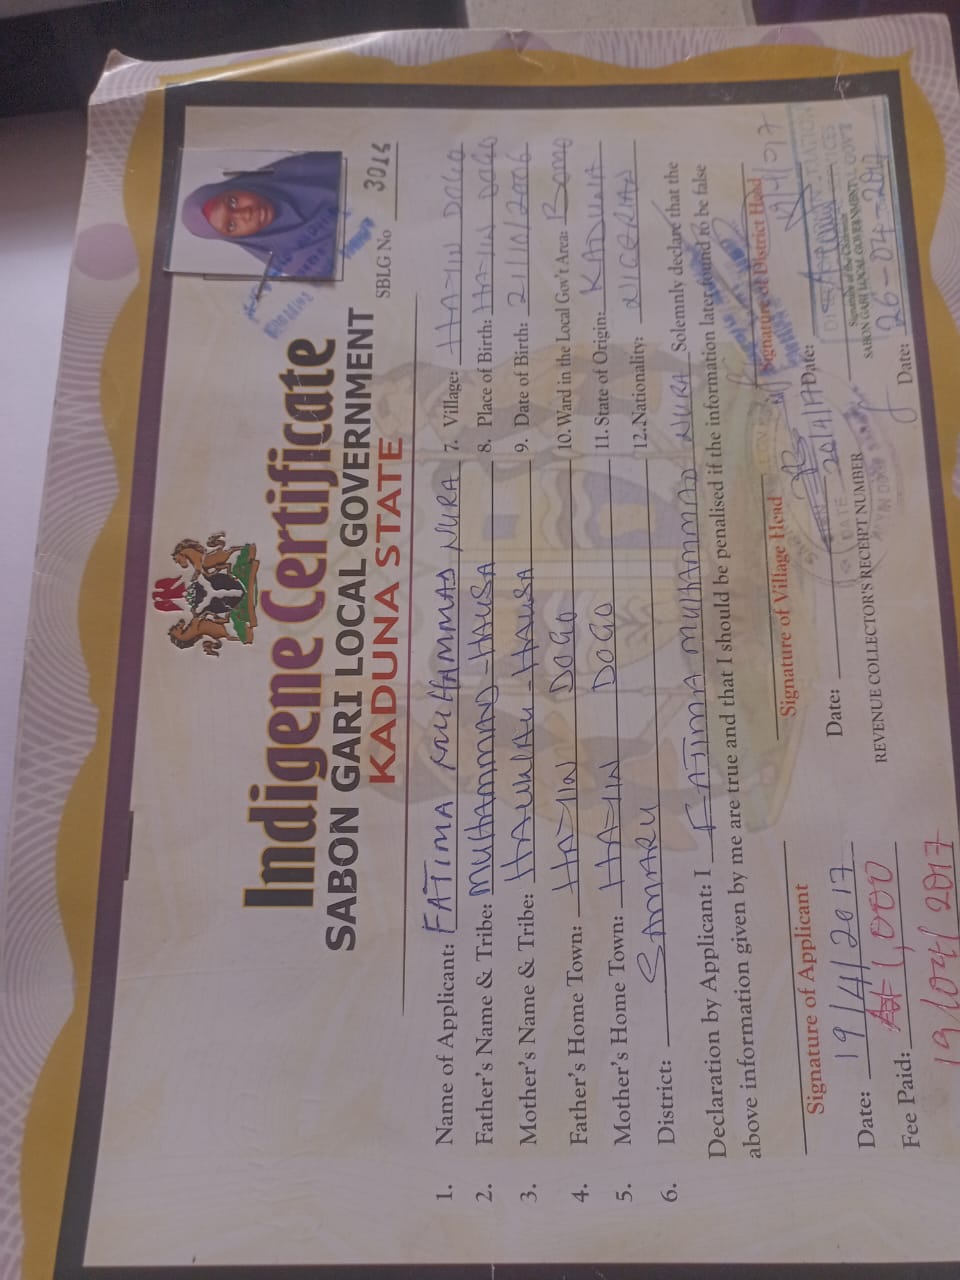 Indigene Certificate
SABON GARI LOCAL GOVERNMENT
KADUNA STATE
SBLG No 3016
1. Name of Applicant: FATIMA MUHAMMAD NURA
7. Village: HAYIN DOGO
2. Father's Name & Tribe: MUHAMMAD - HAUSA
8. Place of Birth: HAYIN DOGO
3. Mother's Name & Tribe: HAUWA'U - HAUSA
9. Date of Birth:
4. Father's Home Town: HAYIN DOGO
10. Ward in the Local Gov't Area:
5. Mother's Home Town: HAYIN DOGO
11. State of Origin: KADUNA
6. District: SAMARU
12. Nationality: NIGERIAN
Declaration by Applicant: I FATIMA MUHAMMAD NURA Solemnly declare that the
above information given by me are true and that I should be penalised if the information later found to be false
Signature of Applicant
Signature of Village Head
Signature of District Head
Date: 19/4/2017
Date: 20/4/17
Date:
Fee Paid: ₦1,000
REVENUE COLLECTOR'S RECEIPT NUMBER
SABON GARI LOCAL GOVERNMENT
Date: 26-04-2017
19/04/2017